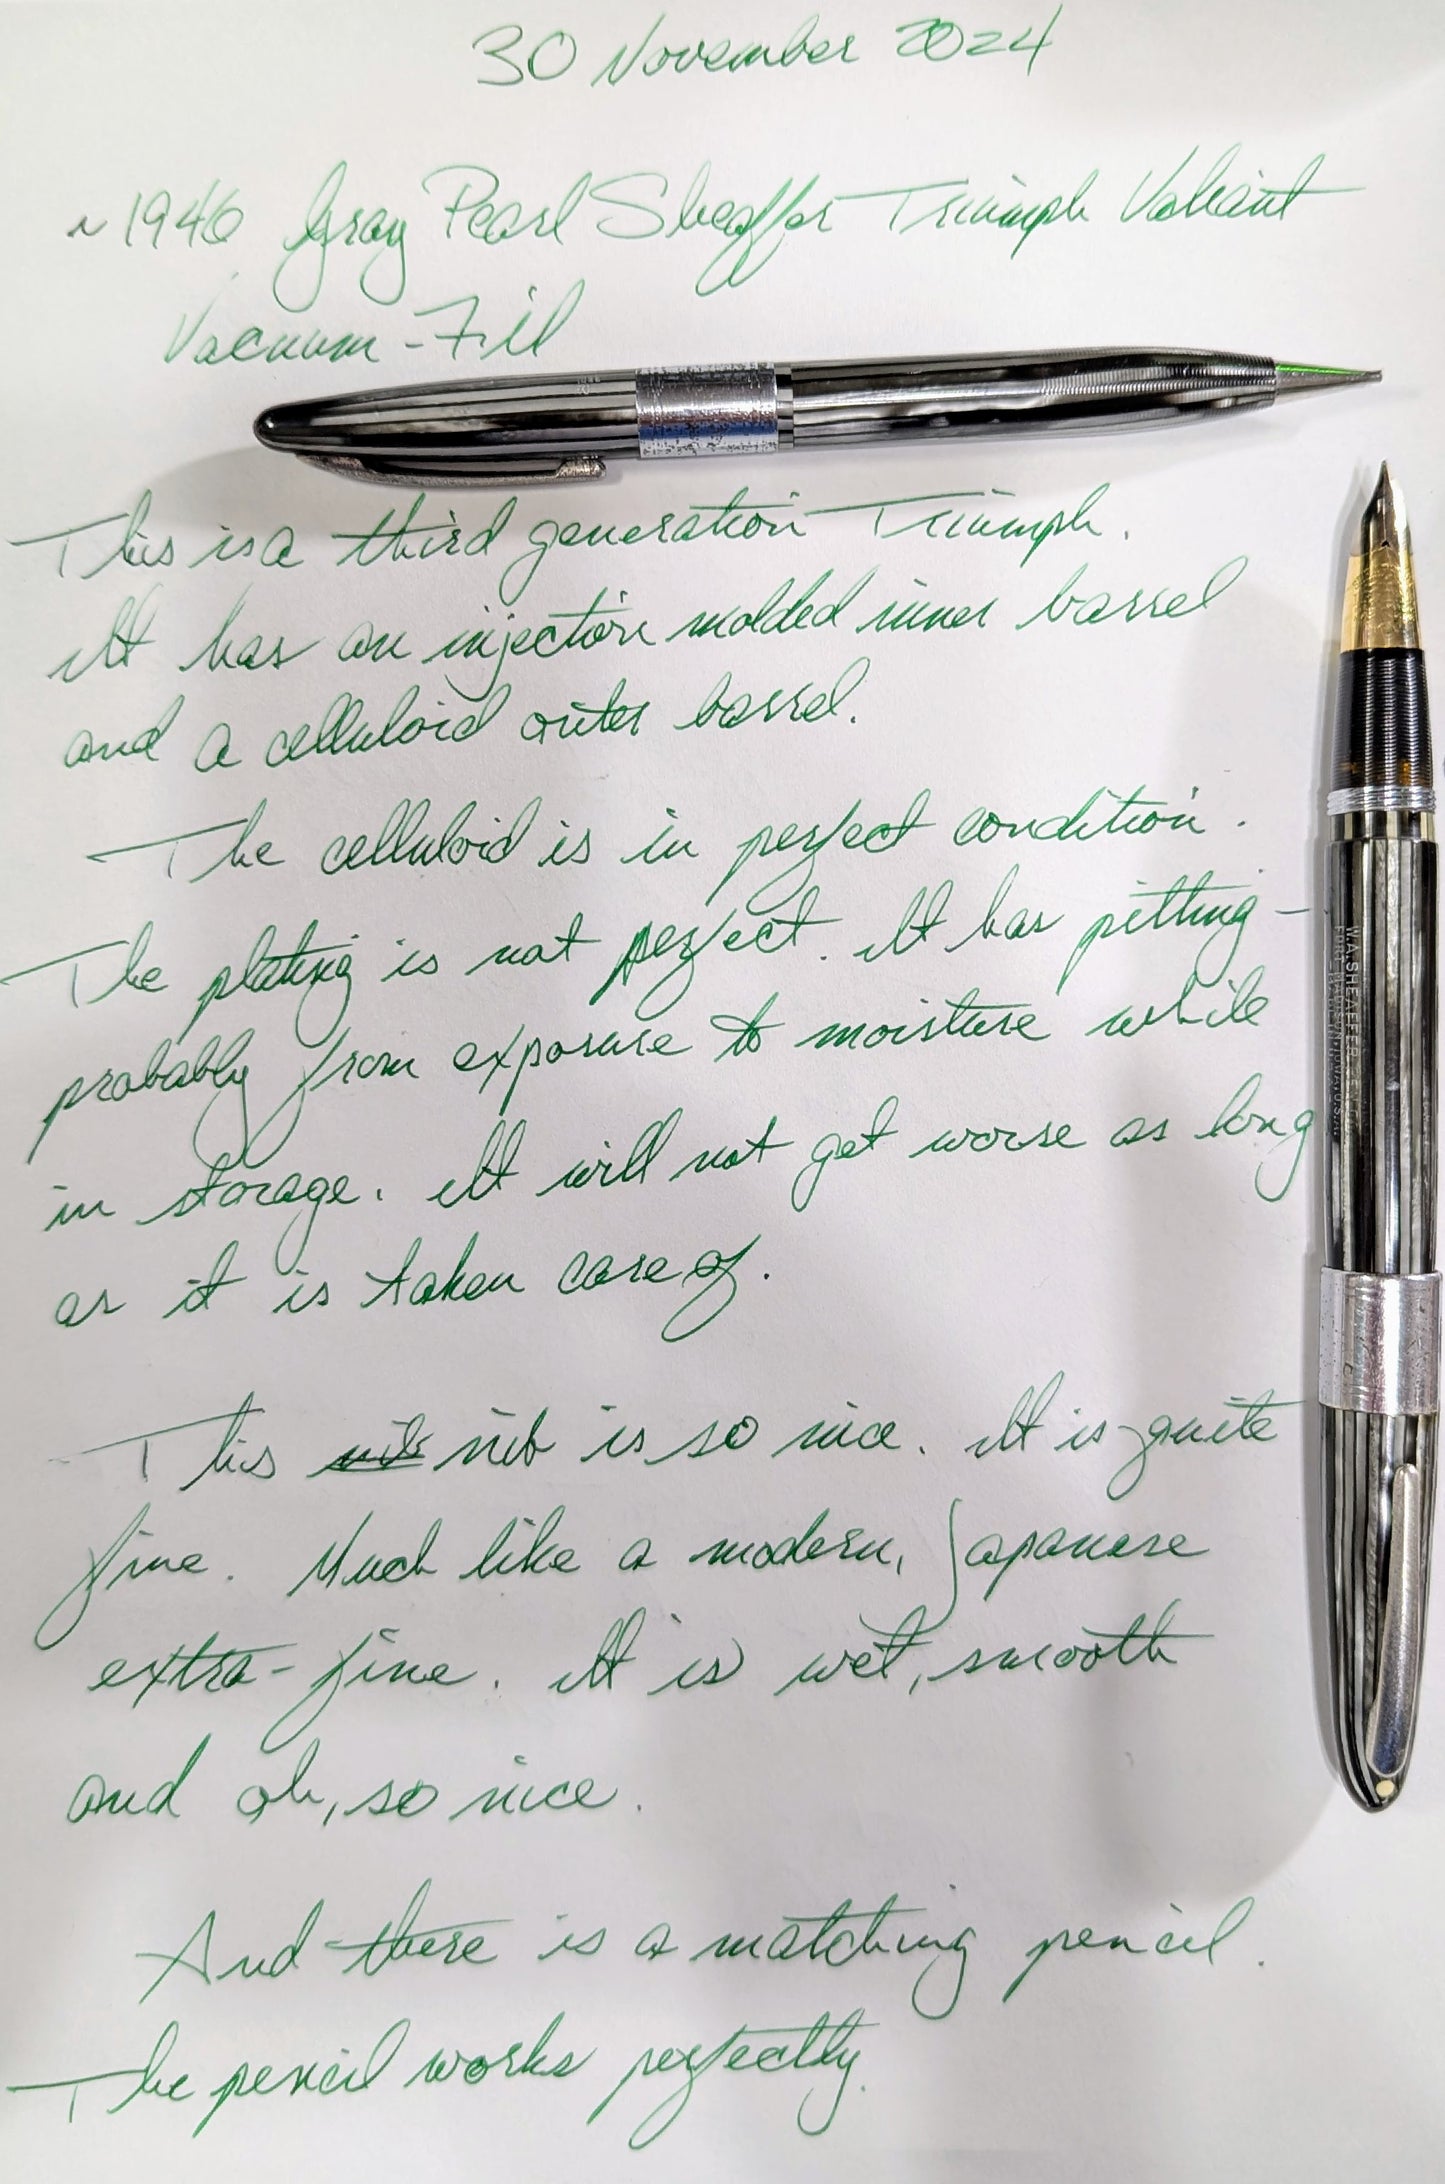 30 November 2024
~1946 Gray Pearl Sheaffer Triumph Valiant
Vacuum-Fil
This is a third generation Triumph.
It has an injection molded inner barrel
and a celluloid outer barrel.
The celluloid is in perfect condition.
The plating is not perfect. It has pitting -
probably from exposure to moisture while
in storage. It will not get worse as long
as it is taken care of.
This nib is so nice. It is quite
fine. Much like a modern, Japanese
extra-fine. It is wet, smooth
and oh, so nice.
And there is a matching pencil.
The pencil works perfectly.
W.A. SHEAFFER PEN CO.
FORT MADISON, IOWA, U.S.A.